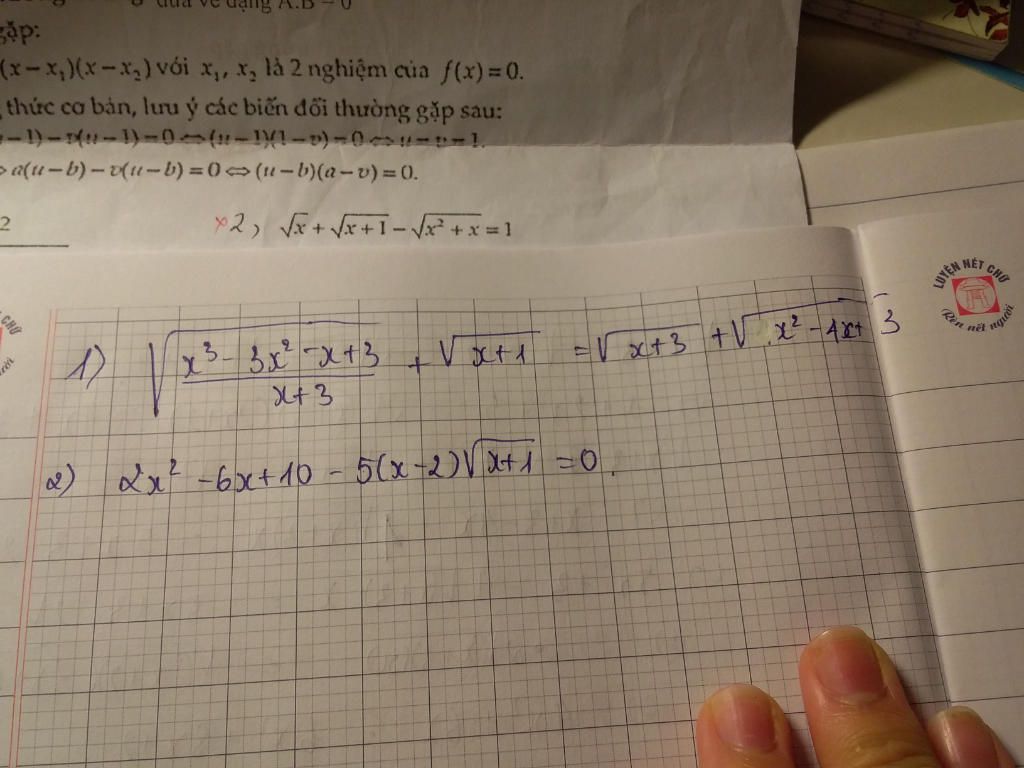 đưa về dạng A.B = 0
gặp:
(x−x₁)(x−x₂) với x₁, x₂ là 2 nghiệm của f(x)=0.
thức cơ bản, lưu ý các biến đổi thường gặp sau:
−1)−v(u−1)=0⇔(u−1)(1−v)=0⇔u=v=1.
a(u−b)−v(u−b)=0⇔(u−b)(a−v)=0.
2
×2, √x + √(x+1) − √(x²+x) = 1
LUYỆN NÉT CHỮ
Rèn nết người
1) √((x³ − 3x² − x + 3)/(x+3)) + √(x+1) = √(x+3) + √(x² − 4x + 3)
2) 2x² − 6x + 10 − 5(x−2)√(x+1) = 0.